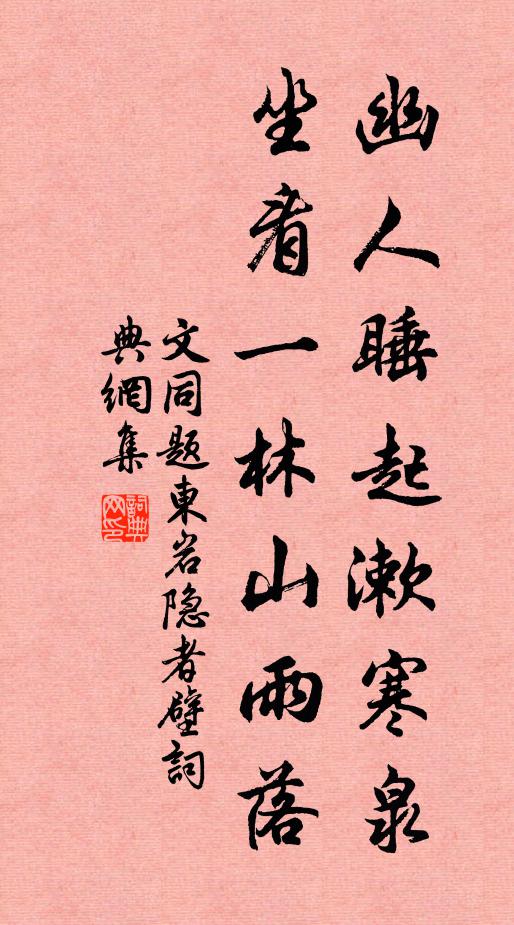 幽人睡起漱寒泉
坐看一林山雨落
文同题東岩隐者壁詞
典網集
詞典网印